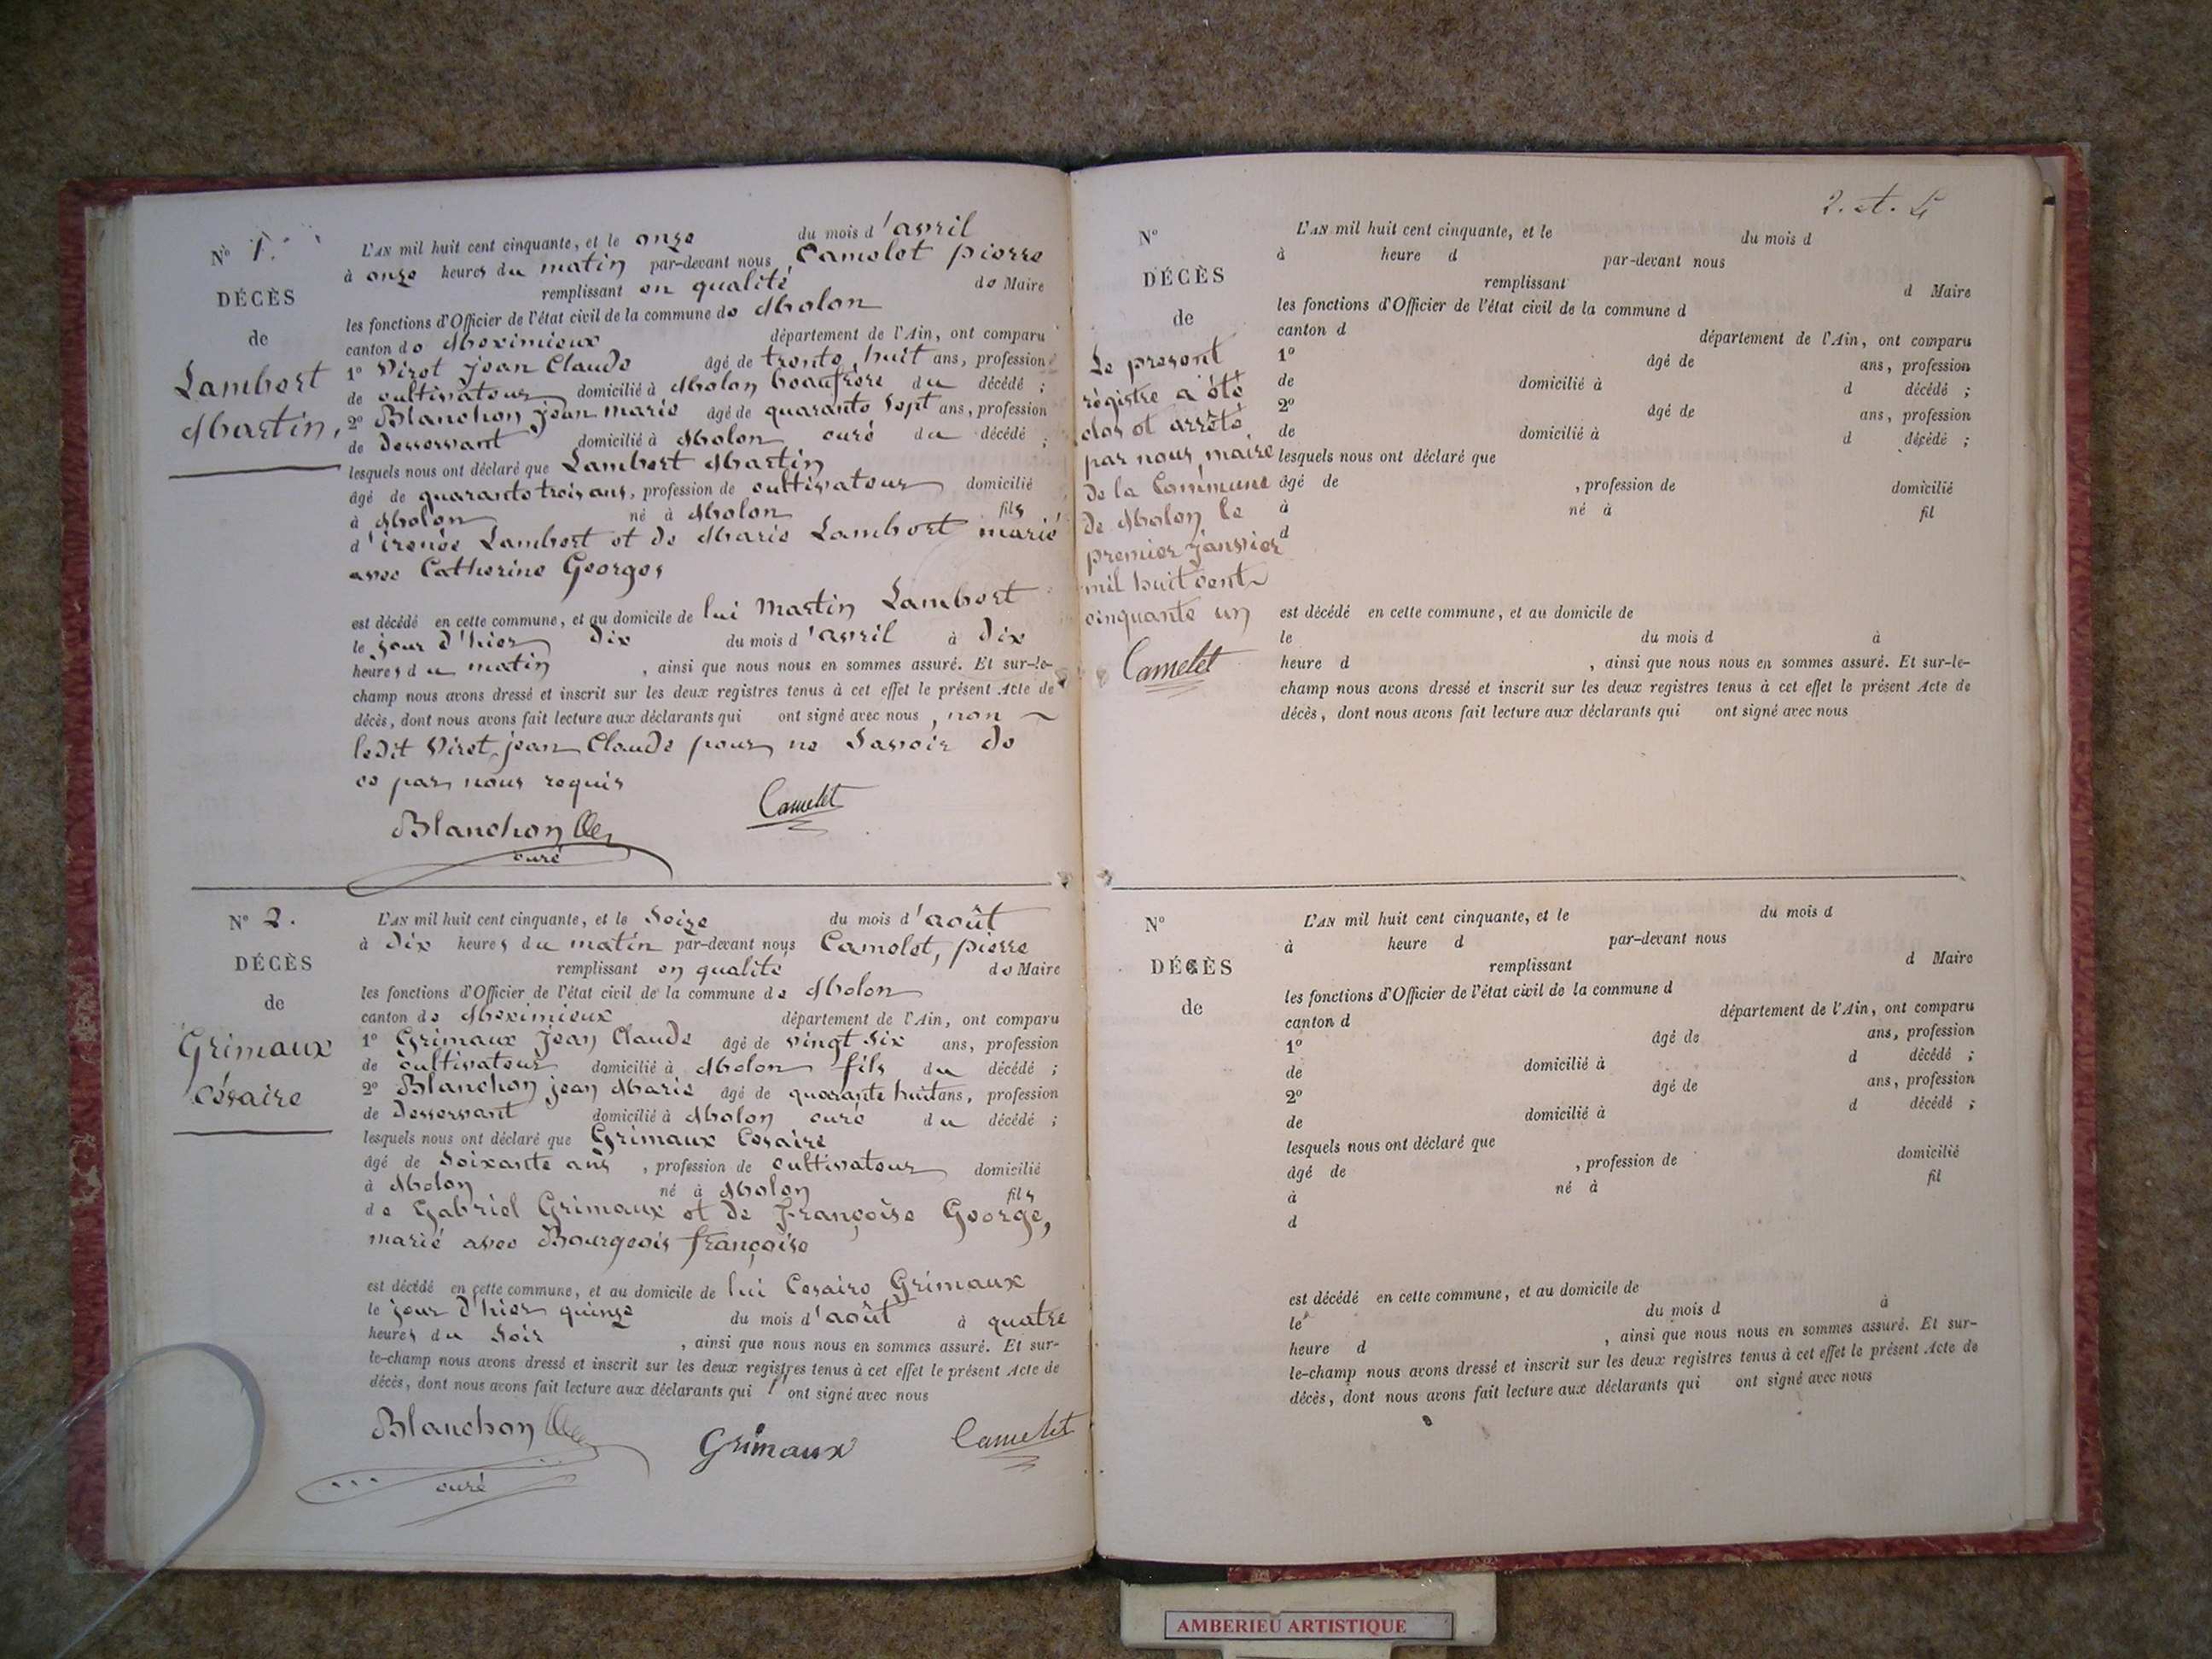 N° 1.
DÉCÈS
de
Lambert
Martin,
L'AN mil huit cent cinquante, et le onze du mois d'avril
à onze heures du matin par-devant nous Camelet pierre
remplissant en qualité de Maire
les fonctions d'Officier de l'état civil de la commune de Molon
canton de Meximieux département de l'Ain, ont comparu
1° Viret jean Claude âgé de trente huit ans, profession
de cultivateur domicilié à Molon beaufrère du décédé ;
2° Blanchon jean marie âgé de quarante sept ans, profession
de desservant domicilié à Molon curé du décédé ;
lesquels nous ont déclaré que Lambert Martin
âgé de quarante trois ans, profession de cultivateur domicilié
à Molon né à Molon fils
d'irenée Lambert et de Marie Lambert marié
avec Catherine Georges
est décédé en cette commune, et au domicile de lui Martin Lambert
le jour d'hier dix du mois d'avril à dix
heures du matin , ainsi que nous nous en sommes assuré. Et sur-le-
champ nous avons dressé et inscrit sur les deux registres tenus à cet effet le présent Acte de
décès, dont nous avons fait lecture aux déclarants qui ont signé avec nous, non
ledit Viret jean Claude pour ne Savoir de
ce par nous requis
Blanchon
curé
Camelet
N° 2.
DÉCÈS
de
Grimaux
Césaire
L'AN mil huit cent cinquante, et le Seize du mois d'août
à dix heures du matin par-devant nous Camelet, pierre
remplissant en qualité de Maire
les fonctions d'Officier de l'état civil de la commune de Molon
canton de Meximieux département de l'Ain, ont comparu
1° Grimaux Jean Claude âgé de vingt Six ans, profession
de cultivateur domicilié à Molon fils du décédé ;
2° Blanchon jean Marie âgé de quarante huit ans, profession
de desservant domicilié à Molon curé du décédé ;
lesquels nous ont déclaré que Grimaux Cesaire
âgé de Soixante ans , profession de cultivateur domicilié
à Molon né à Molon fils
de Gabriel Grimaux et de françoise George,
marié avec Bourgeois françoise
est décédé en cette commune, et au domicile de lui Cesaire Grimaux
le jour d'hier quinze du mois d'août à quatre
heures du Soir , ainsi que nous nous en sommes assuré. Et sur-
le-champ nous avons dressé et inscrit sur les deux registres tenus à cet effet le présent Acte de
décès, dont nous avons fait lecture aux déclarants qui l'ont signé avec nous
Blanchon
curé
Grimaux
Camelet
N°
DÉCÈS
de
Le present
régistre a été
clos et arrêté
par nous maire
de la Commune
de Molon le
premier janvier
mil huit cent
cinquante un
Camelet
L'AN mil huit cent cinquante, et le du mois d
à heure d par-devant nous
remplissant d Maire
les fonctions d'Officier de l'état civil de la commune d
canton d département de l'Ain, ont comparu
1° âgé de ans, profession
de domicilié à d décédé ;
2° âgé de ans, profession
de domicilié à d décédé ;
lesquels nous ont déclaré que
âgé de , profession de domicilié
à né à fil
d
est décédé en cette commune, et au domicile de
le du mois d à
heure d , ainsi que nous nous en sommes assuré. Et sur-le-
champ nous avons dressé et inscrit sur les deux registres tenus à cet effet le présent Acte de
décès, dont nous avons fait lecture aux déclarants qui ont signé avec nous
N°
DÉCÈS
de
L'AN mil huit cent cinquante, et le du mois d
à heure d par-devant nous
remplissant d Maire
les fonctions d'Officier de l'état civil de la commune d
canton d département de l'Ain, ont comparu
1° âgé de ans, profession
de domicilié à d décédé ;
2° âgé de ans, profession
de domicilié à d décédé ;
lesquels nous ont déclaré que
âgé de , profession de domicilié
à né à fil
d
est décédé en cette commune, et au domicile de
le du mois d à
heure d , ainsi que nous nous en sommes assuré. Et sur-
le-champ nous avons dressé et inscrit sur les deux registres tenus à cet effet le présent Acte de
décès, dont nous avons fait lecture aux déclarants qui ont signé avec nous
AMBERIEU ARTISTIQUE